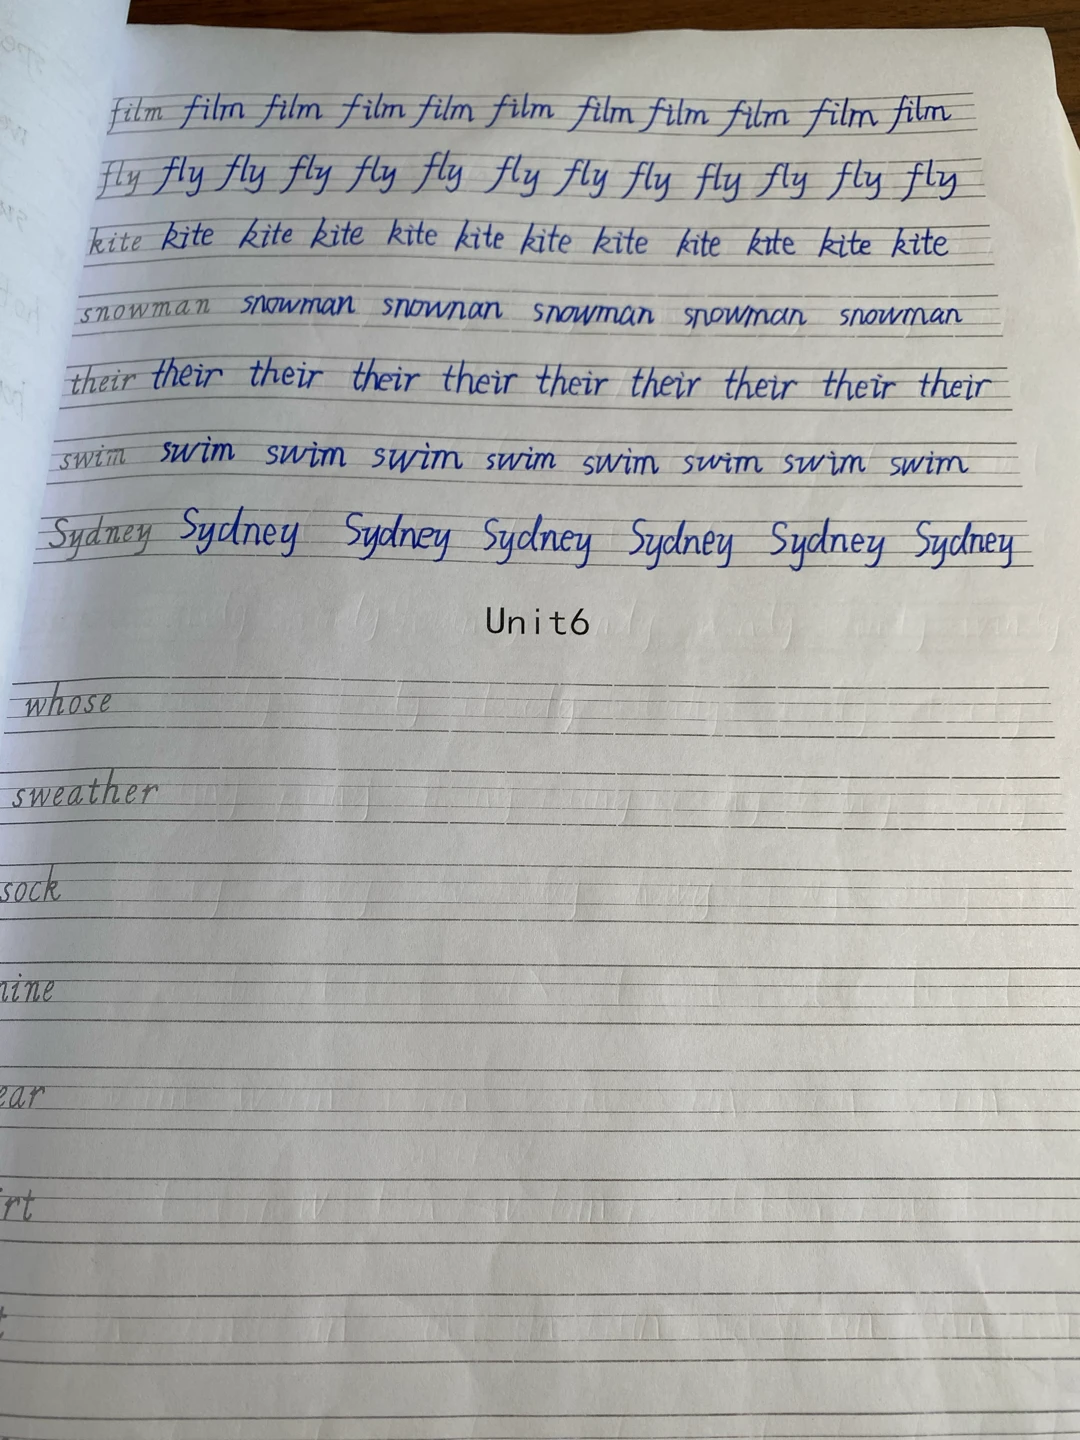 film film film film film film film film film film film
fly fly fly fly fly fly fly fly fly fly fly fly
kite kite kite kite kite kite kite kite kite kite kite kite
snowman snowman snownan snowman snowman snowman
their their their their their their their their their their
swim swim swim swim swim swim swim swim swim
Sydney Sydney Sydney Sydney Sydney Sydney Sydney
Unit6
whose
sweather
sock